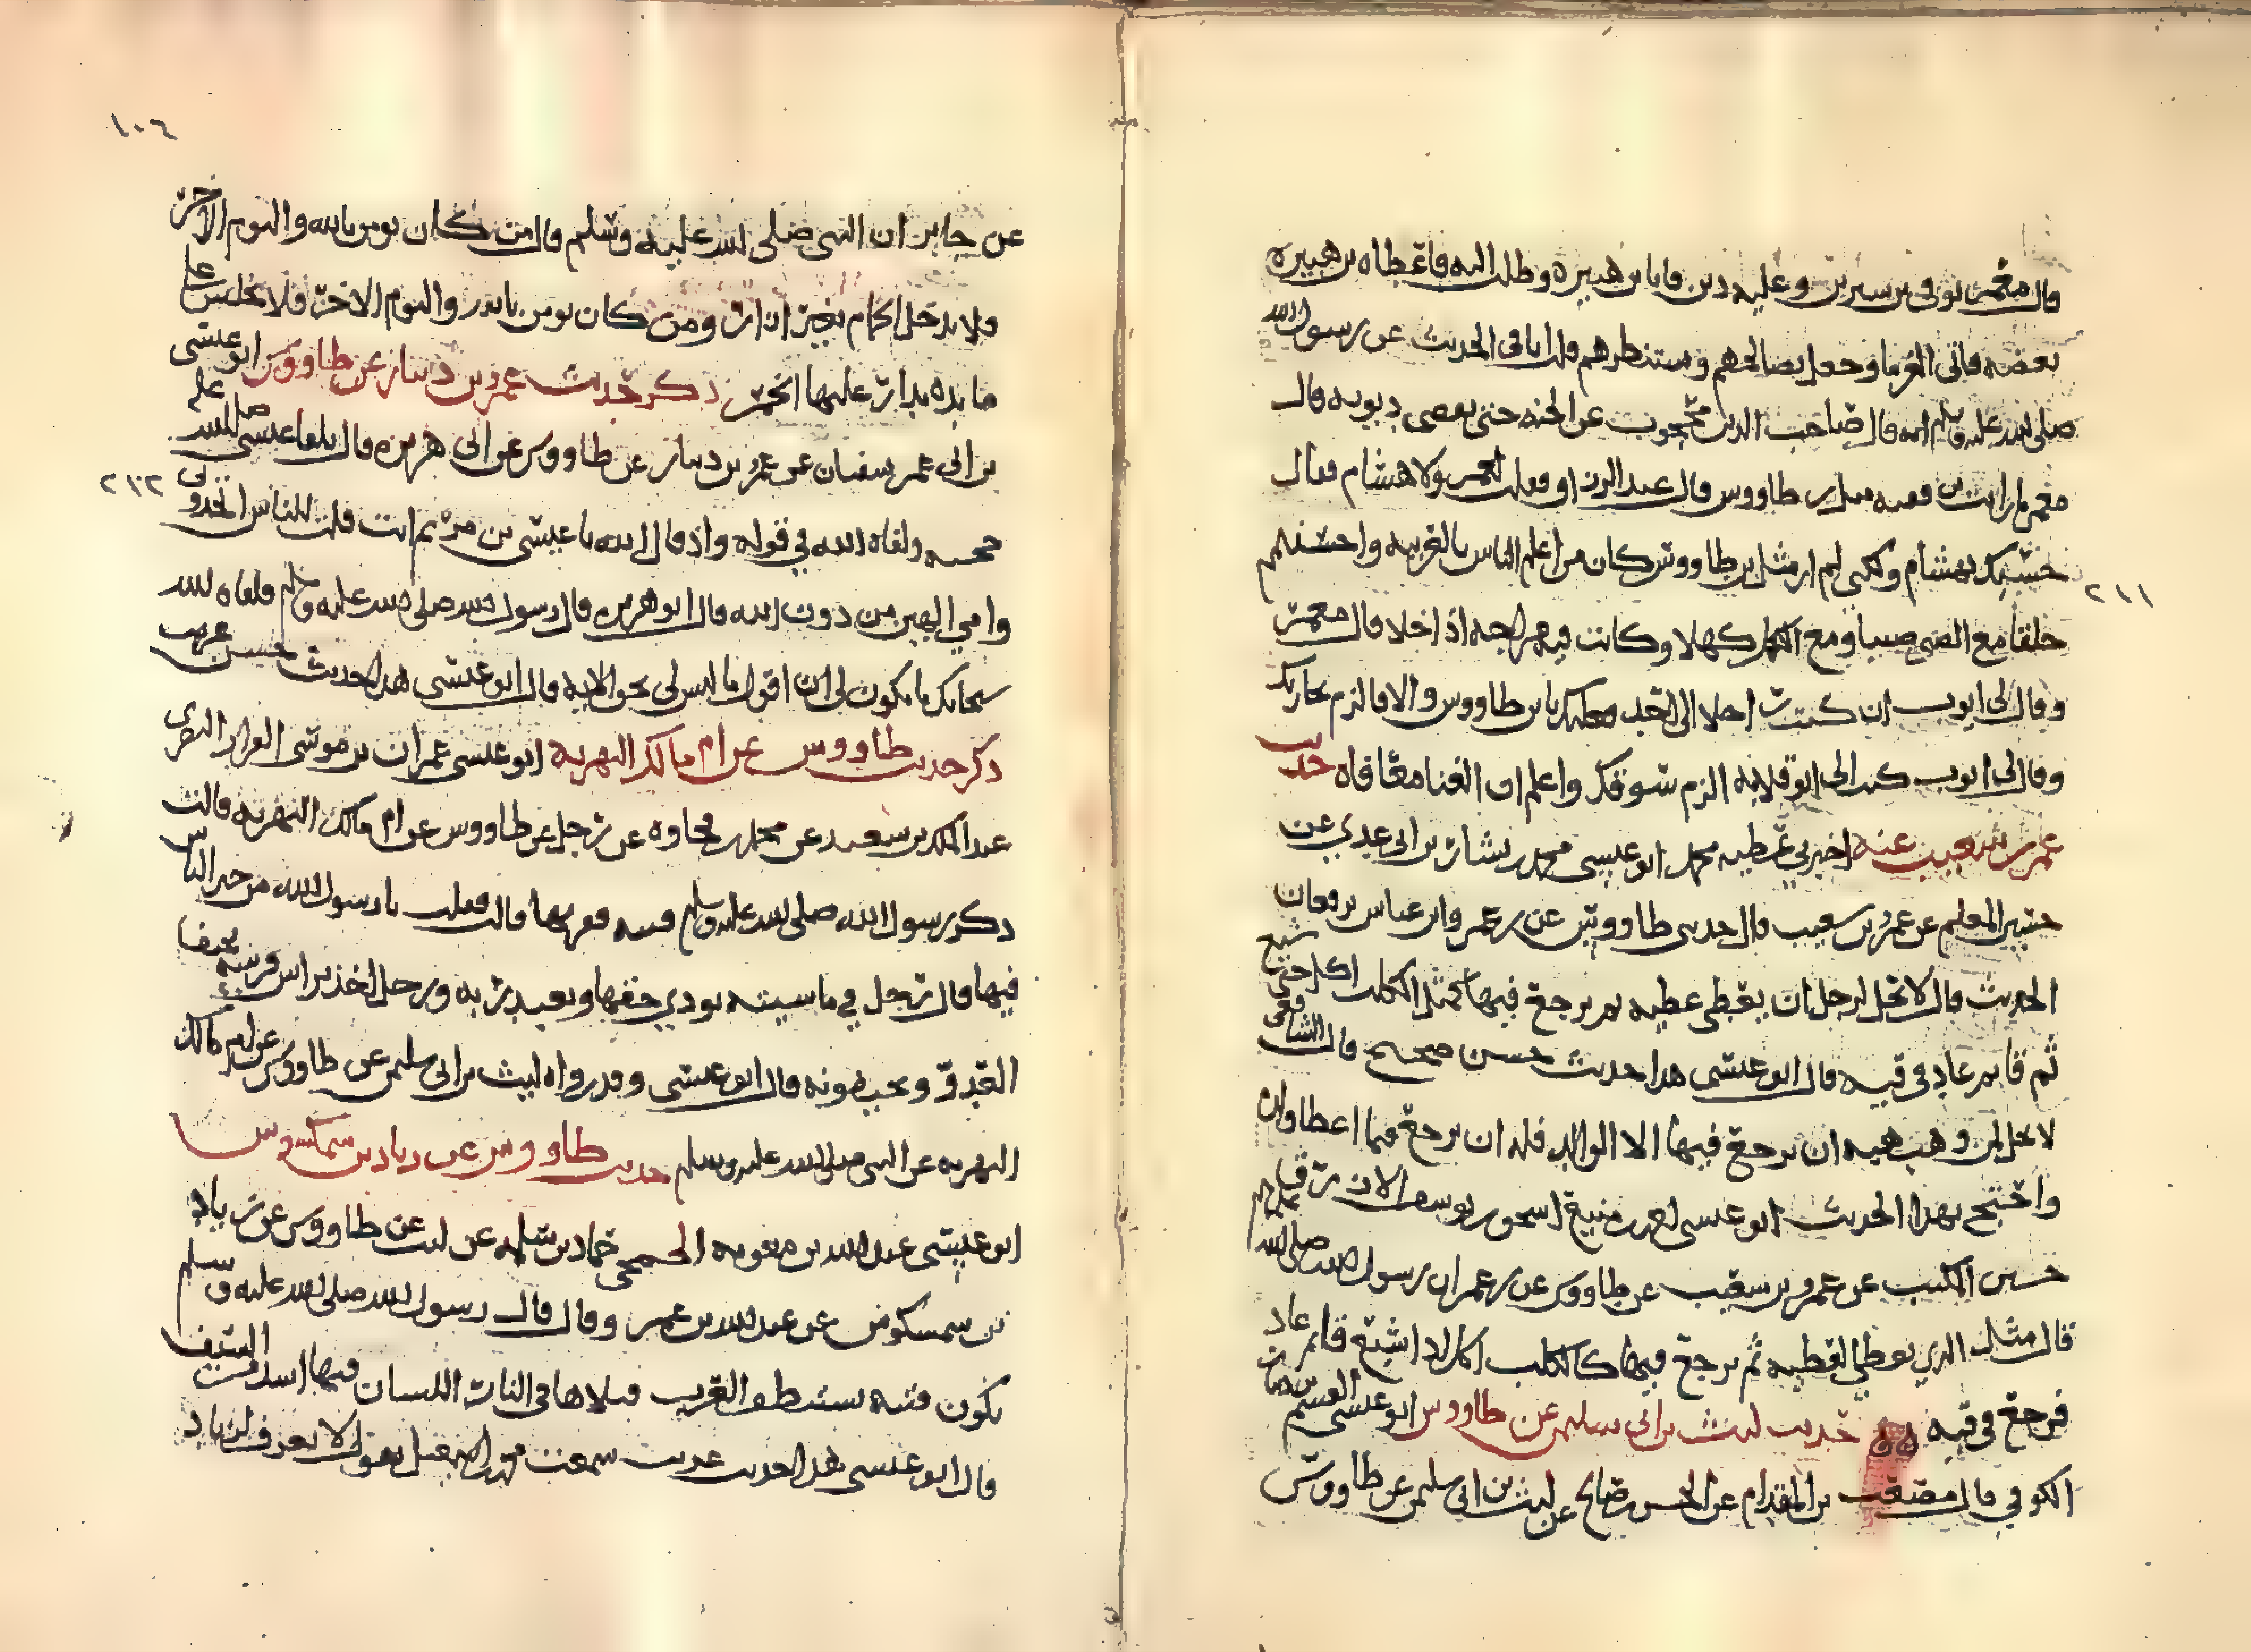 قال معمر توفي بن سيرين وعليه دين فابا بن هبيرة وطلب اليه فاعطاه بن هبيرة
بعضه فاتى الغرما وجعل يصالحهم وستنظرهم قلت اباقي الحديث عن رسول الله
صلى الله عليه وسلم انه قال صاحب الدين محجوب عن الجنة حتى يقضى ديونه قال
معمر ما رايت بن فقيه مثل بن طاووس قال عبد الرزاق فقلت لمعمر ولا هشام فقال
حسبك بهشام ولكني لم ار مثل بن طاووس كان من اعلم الناس بالعربيه واحسنهم
خلقا مع الصبي صبيا ومع الكهل كهلا وكانت فيه مزاحه اذا خلا قال معمر
وقال لي ايوب ان كنت راحلا الى احد فعليك بابن طاووس والا فالزم تجارتك
وقال لي ايوب كتب الي ابو قلابه الزم سوقك واعلم ان الغنا معافاه حديث
عمرو بن شعيب عنه اخبرني عطيه محمد ابو عيسى محمد بن بشار بن ابي عدي عن
حسين المعلم عن عمرو بن سعيب قال حدثني طاووس عن بن عمر وابن عباس يرفعان
الحديث قال لا يحل لرجل ان يعطي عطيه ثم يرجع فيها كمثل الكلب اكل حتى شبع
ثم قا ثم عاد في قيه قال ابو عيسى هذا حديث حسن صحيح قال الشافعي
لا يحل لمن وهب هبه ان يرجع فيها الا الوالد فله ان يرجع فيما اعطا ولده
واحتج بهذا الحديث ابو عيسى احمد بن منيع اسحق بن يوسف الازرق
حسين المكتب عن عمرو بن سعيب عن طاووس عن بن عمر ان رسول الله صلى الله عليه وسلم
قال مثل الذي يعطي العطيه ثم يرجع فيها كالكلب اكل اذا شبع قا ثم عاد
فرجع في قيه حديث ليث بن ابي سليم عن طاووس ابو عيسى القسم بن دينار
الكوفي قال مصعب بن المقدام عن الحسن بن صالح عن ليث بن ابي سليم عن طاووس
٢١١
١٠٦
عن جابر ان النبي صلى الله عليه وسلم قال من كان يومن بالله واليوم الاخر
فلا يدخل الحمام بغير ازار ومن كان يومن بالله واليوم الاخر فلا يجلس على
مايده يدار عليها الخمر ذكر حديث عمرو بن دينار عن طاووس ابو عيسى
بن ابي عمر سفيان عن عمرو بن دينار عن طاووس عن ابي هريرة قال يلقا عيسى
حجته ولقاه الله في قوله واذ قال الله يا عيسى بن مريم انت قلت للناس اتخذوني
وامي الهين من دون الله قال ابو هريرة قال رسول الله صلى الله عليه وسلم فلقاه الله
سبحانك ما يكون لي ان اقول ما ليس لي بحق الايه قال ابو عيسى هذا حديث حسن غريب
ذكر حديث طاووس عن ام مالك البهزيه ابو عيسى عمران بن موسى القزاز البصري
عبد الملك بن سعيد عن محمد بن جحاده عن رجل عن طاووس عن ام مالك البهزيه قالت
ذكر رسول الله صلى الله عليه وسلم فتنه فقربها قالت فقلت يا رسول الله من خير الناس
فيها قال رجل في ماشيته يودي حقها ويعبد ربه ورجل اخذ براس فرسه يخيف
العدو ويخيفونه قال ابو عيسى وقد رواه ليث بن ابي سليم عن طاووس عن ام مالك
البهزيه عن النبي صلى الله عليه وسلم حديث طاووس عن زياد بن سمكوس
ابو عيسى عبد الله بن معويه الجمحي حماد بن سلمه عن ليث عن طاووس عن زياد
بن سمسكوش عن عبد الله بن عمر وقال قال رسول الله صلى الله عليه وسلم
يكون فتنه تستنطف العرب قتلاها في النار اللسان فيها اشد من السيف
قال ابو عيسى هذا حديث غريب سمعت محمد بن اسمعيل يقول لا يعرف لزياد
٢١٢